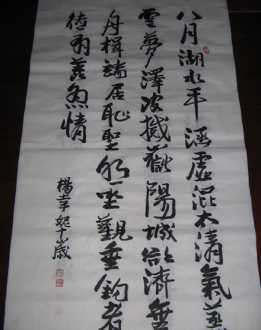 八月湖水平涵虛混太清氣蒸
雲夢澤波撼嶽陽城欲濟無
舟楫端居恥聖明坐觀垂釣者
徒有羨魚情
楊幸歲